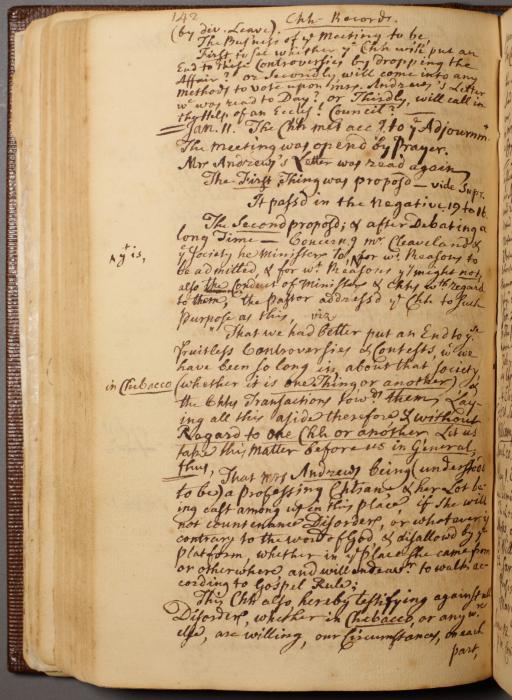 142 Chh Records.
(by div. Leave).
The Business of yͤ Meeting to be,
First, to see whether yͤ Chh will put an
End to these Controversies by dropping the
Affair? or Secondly, will come into any
methods to vote upon mrs. Andrews's Letter
wͨ was read to Day? or Thirdly, will call in
thͤ Help of an Eccles! Council?
Jan. 11. The Chh met accᵍ to yͤ Adjournmᵗ
The meeting was opend by Prayer.
Mrs Andrews's Letter was read again
The First Thing was proposd — vide Supr.
It passd in the Negative, 19 to 16.
The Second proposd; & after Debating a
long Time — Concerng mr Cleaveland &
yͤ Society he Ministers to, for wᵗ Reasons to
be admitted, & for wᵗ Reasons yͤ might not,
also the Conduct of Ministers & Chhs wᵗʰ regard
to them; the Pastor addressd yͤ Chh to Such
Purpose as this, viz
A yᵗ is,
That we had better put an End to yˢᵉ
fruitless Controversies & Contests, wͨ we
have been so long in, about that Society
in Chebacco (whether it is one Thing or another) &
the Chhs Transactions towᵈˢ them, Lay-
ing all this aside therefore & without
Regard to one Chh or another Let us
take this Matter before us in General,
thus, That mrs Andrews being (understood
to be) a professing Chtian, & her Lot be-
ing cast among us in this place, if She will
not countenance Disorders, or whatever is
contrary to the word of God, & disallowd by yͤ
Platform, whether in yͤ Place She came from
or otherwhere and will endeavʳ to walk ac-
cording to Gospel Rule;
This Chh also, hereby testifying against all
Disorders, whether in Chebacco, or any wʰʳᵉ
else, are willing, our Circumstances, on each
part,